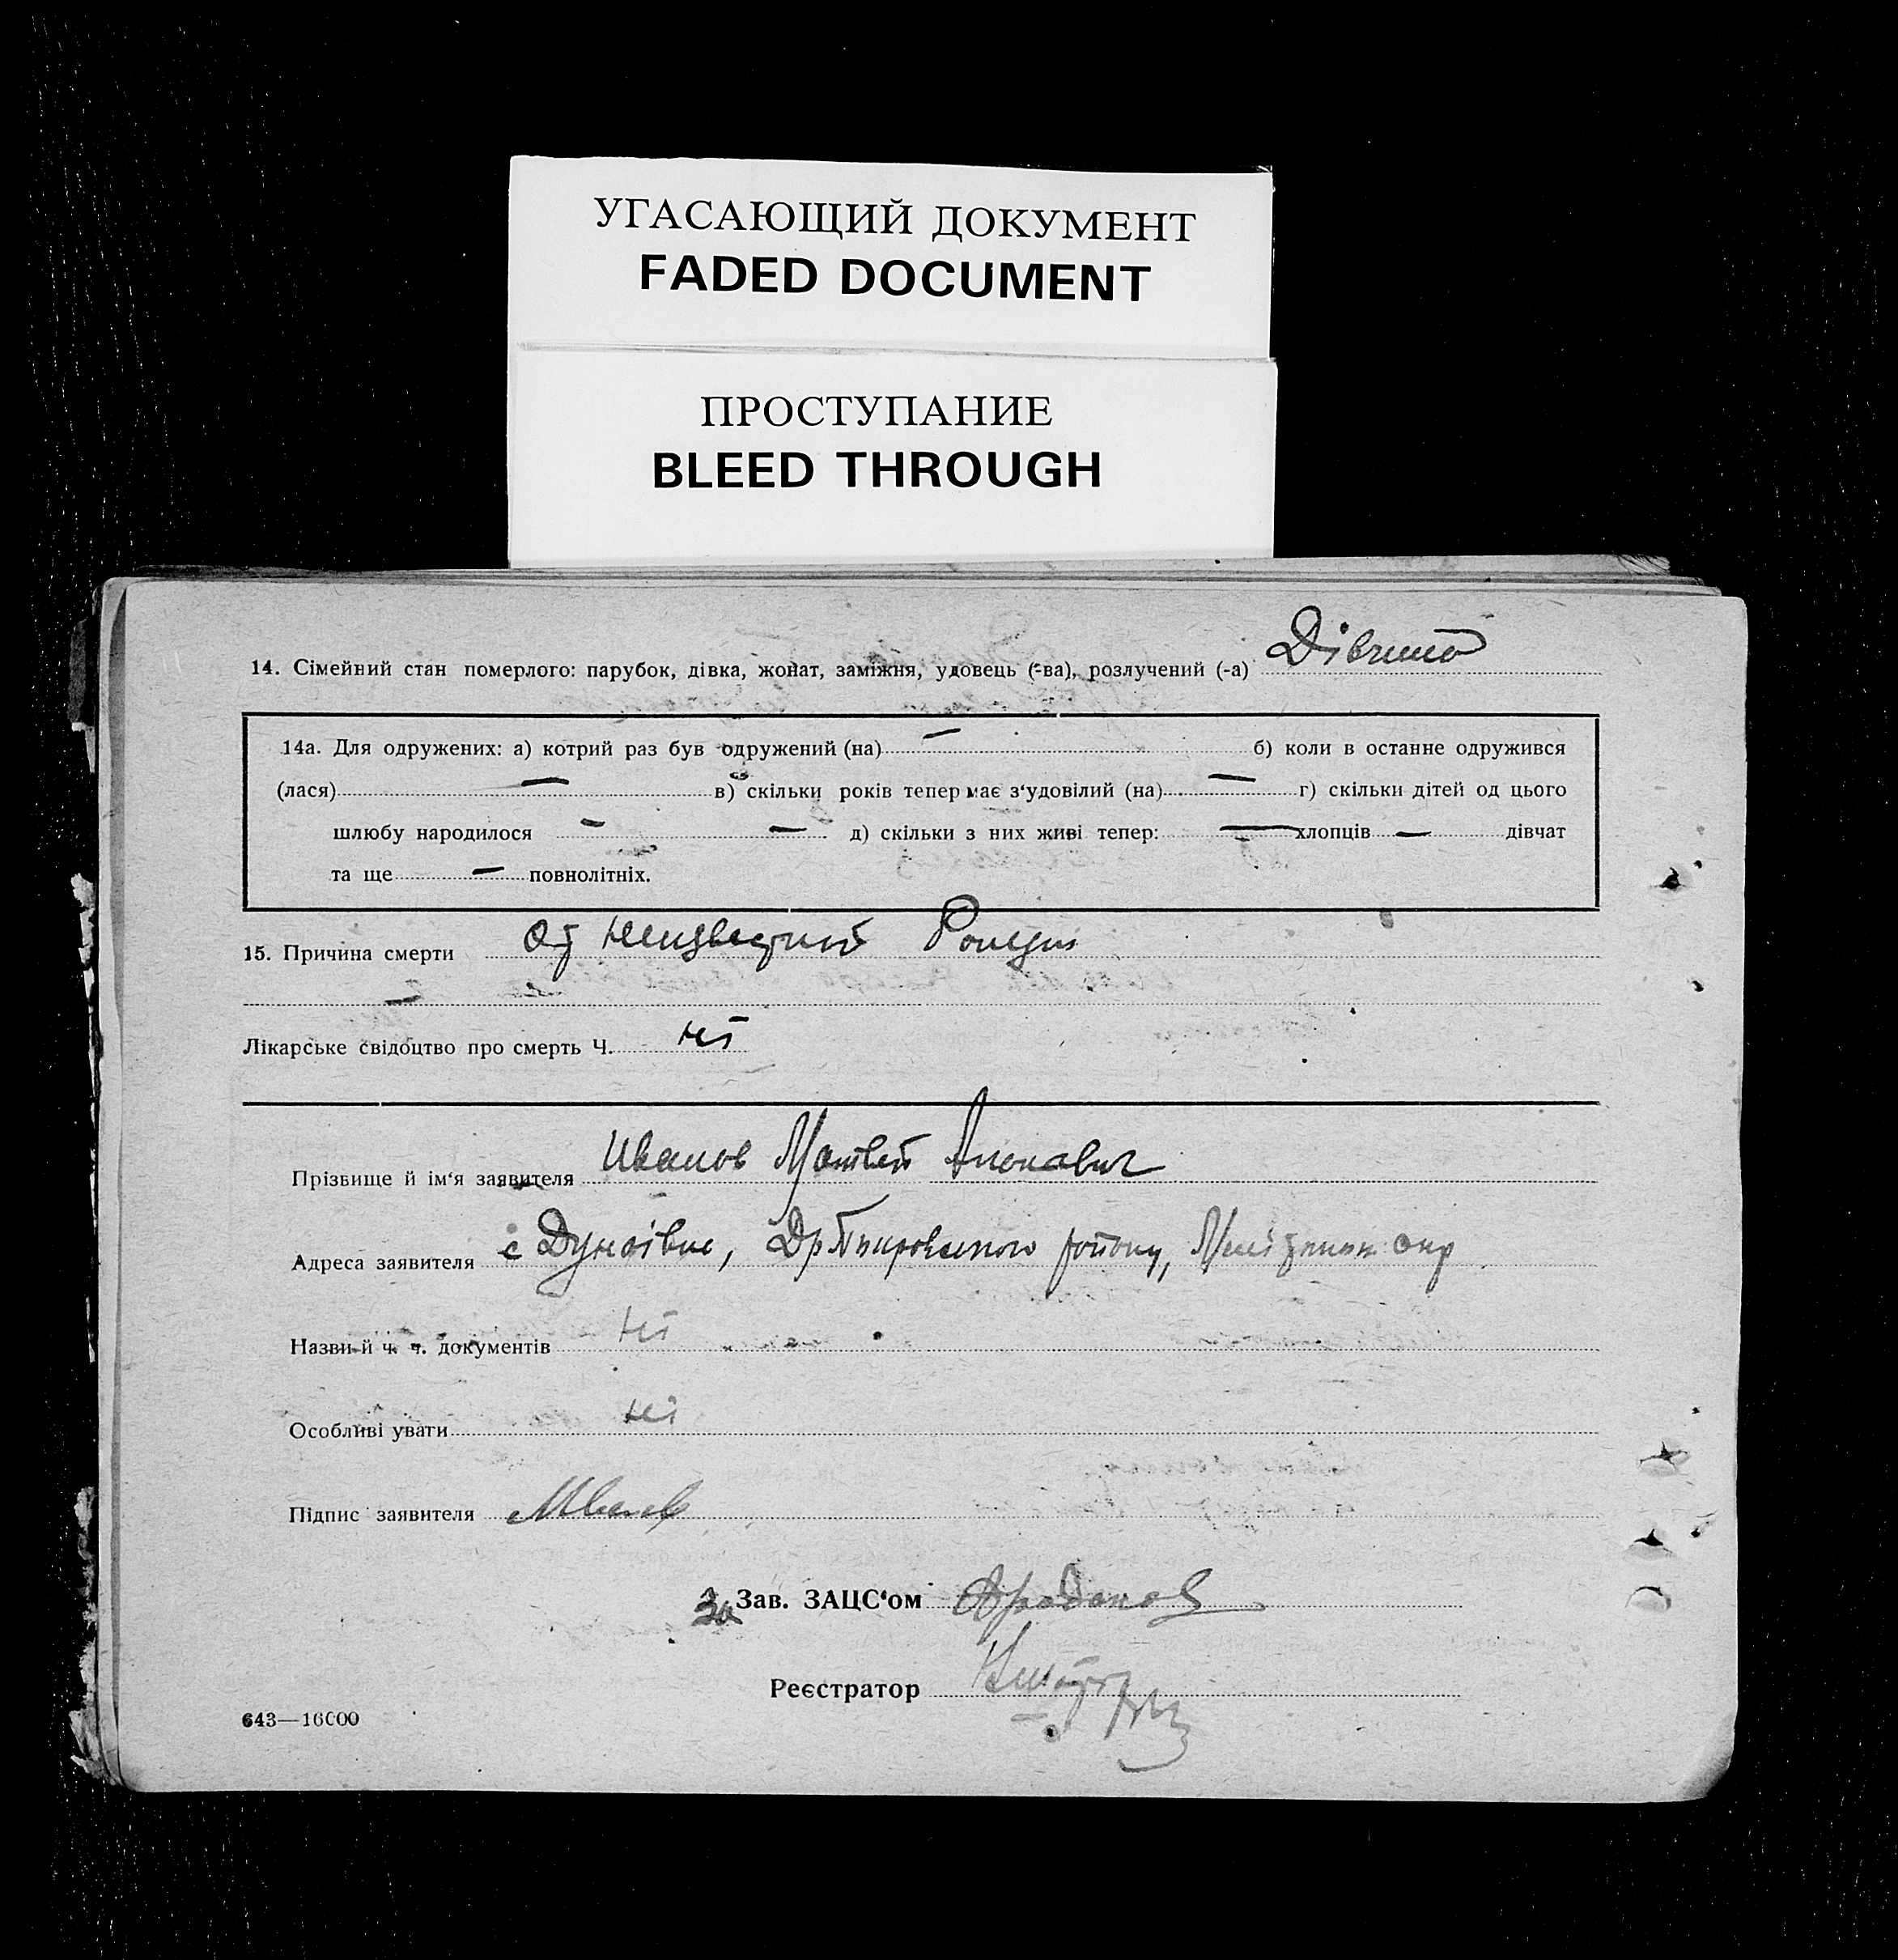 УГАСАЮЩИЙ ДОКУМЕНТ
FADED DOCUMENT
ПРОСТУПАНИЕ
BLEED THROUGH
14. Сімейний стан померлого: парубок, дівка, жонат, заміжня, удовець (-ва), розлучений (-а)
14а. Для одружених: а) котрий раз був одружений (на) — б) коли в останне одружився
(лася) — в) скільки років тепер має з‘удовілий (на) — г) скільки дітей од цього
шлюбу народилося — — д) скільки з них живі тепер: — хлопців — дівчат
та ще — повнолітніх.
15. Причина смерти От
—
Лікарське свідоцтво про смерть Ч. ні
Прізвище й ім‘я заявителя Иванов Матвей
Адреса заявителя с Дунаівка, району,
Назви й ч. ч. документів ні
Особливі уваги ні
Підпис заявителя
За Зав. ЗАЦС‘ом
Реєстратор
643—16000